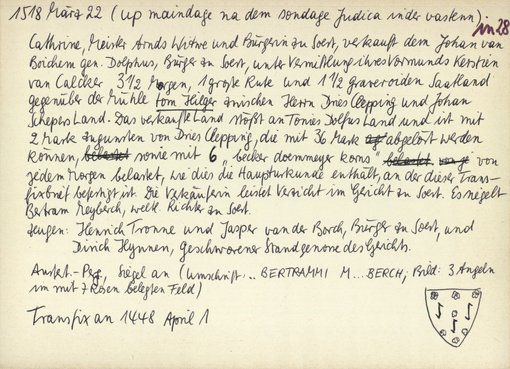 1518 März 22 (up maindage na dem sondage Judica in der vasten).
in 28
Cathrine, Meister Arnds Witwe und Bürgerin zu Soest, verkauft dem Johan van
Boichem gen. Dolphus, Bürger zu Soest, unter Vermittlung ihres Vormunds Kersten
van Calcker 3 1/2 Morgen, 1 große Rute und 1 1/2 graveroiden Saatland
gegenüber der Mühle tom Hilger zwischen Herrn Dries Clepping und Johan
Schepers Land. Das verkaufte Land stößt an Tonies Dolfus Land und ist mit
2 Mark zugunsten von Dries Clepping, die mit 36 Mark abgelöst werden
können, belastet sowie mit 6 "becker doemmeyer korns" belastet von
jedem Morgen belastet, wie dies die Haupturkunde enthält, an der dieser Trans-
fixbrief befestigt ist. Die Verkäuferin leistet Verzicht im Gericht zu Soest. Es siegelt
Bertram Meyberch, weltl. Richter zu Soest.
Zeugen: Henrich Tronne und Jasper van der Borch, Bürger zu Soest, und
Dirich Hynnen, geschworener Standgenosse des Gerichts.
Ausf.-Perg., Siegel an (Umschrift: .. BERTRAMMI M... BERCH; Bild: 3 Angeln
im mit 7 Rosen belegten Feld)
Transfix an 1448 April 1